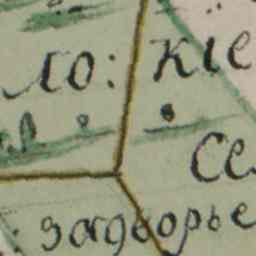 ло: кіе
се
задворье